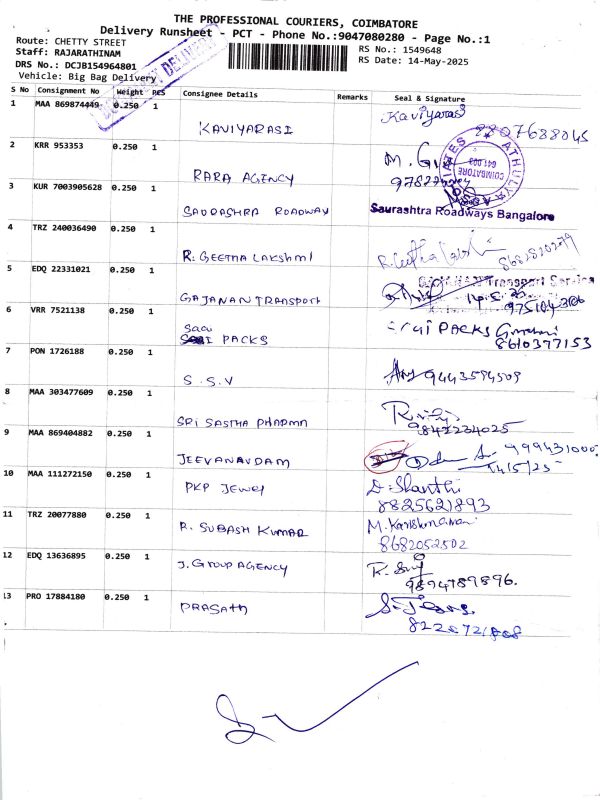 THE PROFESSIONAL COURIERS, COIMBATORE
Delivery Runsheet - PCT - Phone No.:9047080280 - Page No.:1
Route: CHETTY STREET
Staff: RAJARATHINAM
DRS No.: DCJB154964801
Vehicle: Big Bag Delivery
RS No.: 1549648
RS Date: 14-May-2025
DELIVERY
S No Consignment No Weight PCS Consignee Details Remarks Seal & Signature
1 MAA 869874449 0.250 1 KAVIYARASI Kaviyarasi
2207688045
2 KRR 953353 0.250 1 RARA AGENCY
ATHULYA
COIMBATORE
641 003
3 KUR 7003905628 0.250 1 SAURASHRA ROADWAY
Saurashtra Roadways Bangalore
4 TRZ 240036490 0.250 1 R. GEETHA LAKSHMI R. Geetha
5 EDQ 22331021 0.250 1 GAJANAN TRANSPORT
Transport Service
6 VRR 7521138 0.250 1 SAAI PACKS PACKS
8610377153
7 PON 1726188 0.250 1 S.S.V 9443594509
8 MAA 303477609 0.250 1 SRI SASTHA PHARMA
9842234025
9 MAA 869404882 0.250 1 JEEVANAVDAM
14/5/25
10 MAA 111272150 0.250 1 PKP JEWEL D. Shanthi
8825621893
11 TRZ 20077880 0.250 1 R. SUBASH KUMAR
8682052502
12 EDQ 13636895 0.250 1 J. GROUP AGENCY
9894789896.
13 PRO 17884180 0.250 1 PRASATH